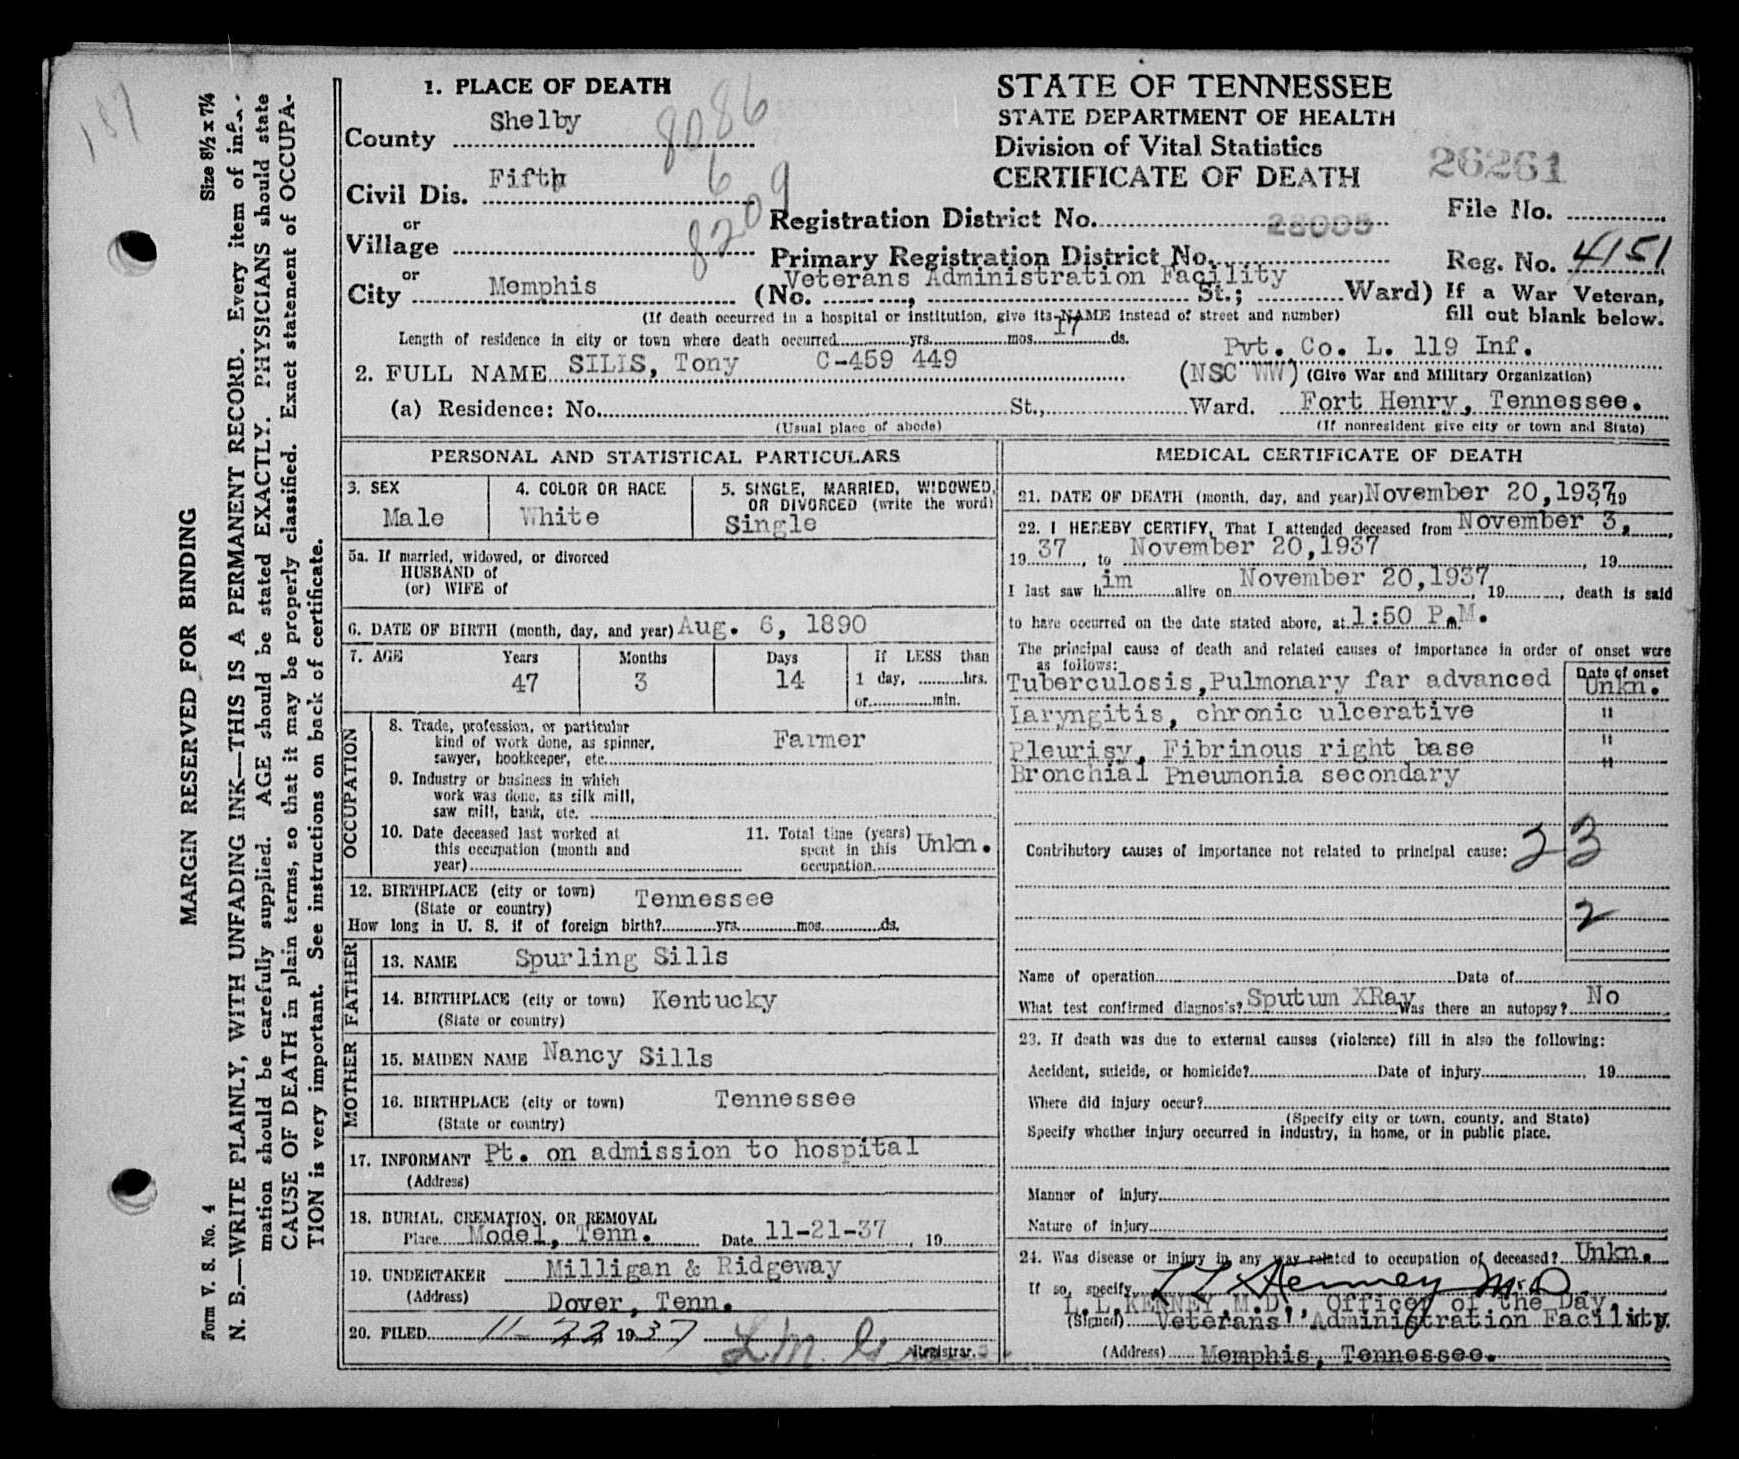 187
Size 8½ x 7¼
MARGIN RESERVED FOR BINDING
Form V. S. No. 4
N. B.—WRITE PLAINLY, WITH UNFADING INK—THIS IS A PERMANENT RECORD. Every item of infor-
mation should be carefully supplied. AGE should be stated EXACTLY. PHYSICIANS should state
CAUSE OF DEATH in plain terms, so that it may be properly classified. Exact statement of OCCUPA-
TION is very important. See instructions on back of certificate.
1. PLACE OF DEATH
County Shelby
8086
Civil Dis. Fifth
6
or
Village
8209
or
City Memphis
STATE OF TENNESSEE
STATE DEPARTMENT OF HEALTH
Division of Vital Statistics
CERTIFICATE OF DEATH
26261
Registration District No. 28005
File No.
Primary Registration District No.
Reg. No. 4151
(No. Veterans Administration Facility St.; Ward)
If a War Veteran,
fill out blank below.
(If death occurred in a hospital or institution, give its NAME instead of street and number)
Length of residence in city or town where death occurred yrs. mos. 17 ds.
2. FULL NAME SILLS, Tony C-459 449
Pvt. Co. L. 119 Inf.
(NSC WW) (Give War and Military Organization)
(a) Residence: No. St., Ward. Fort Henry, Tennessee.
(Usual place of abode)
(If nonresident give city or town and State)
PERSONAL AND STATISTICAL PARTICULARS
3. SEX
Male
4. COLOR OR RACE
White
5. SINGLE, MARRIED, WIDOWED,
OR DIVORCED (write the word)
Single
5a. If married, widowed, or divorced
HUSBAND of
(or) WIFE of
6. DATE OF BIRTH (month, day, and year) Aug. 6, 1890
7. AGE Years Months Days If LESS than
47 3 14 1 day, hrs.
or min.
OCCUPATION
8. Trade, profession, or particular
kind of work done, as spinner,
sawyer, bookkeeper, etc. Farmer
9. Industry or business in which
work was done, as silk mill,
saw mill, bank, etc.
10. Date deceased last worked at
this occupation (month and
year)
11. Total time (years)
spent in this
occupation Unkn.
12. BIRTHPLACE (city or town) Tennessee
(State or country)
How long in U. S. if of foreign birth? yrs. mos. ds.
FATHER
13. NAME Spurling Sills
14. BIRTHPLACE (city or town) Kentucky
(State or country)
MOTHER
15. MAIDEN NAME Nancy Sills
16. BIRTHPLACE (city or town) Tennessee
(State or country)
17. INFORMANT Pt. on admission to hospital
(Address)
18. BURIAL, CREMATION, OR REMOVAL
Place Model, Tenn. Date 11-21-37, 19
19. UNDERTAKER Milligan & Ridgeway
(Address) Dover, Tenn.
20. FILED 11-22 1937
Registrar.
MEDICAL CERTIFICATE OF DEATH
21. DATE OF DEATH (month, day, and year) November 20,1937 19
22. I HEREBY CERTIFY, That I attended deceased from November 3,
19 37, to November 20,1937, 19
I last saw him alive on November 20,1937, 19, death is said
to have occurred on the date stated above, at 1:50 P.M.
The principal cause of death and related causes of importance in order of onset were
as follows:
Date of onset
Tuberculosis,Pulmonary far advanced Unkn.
Laryngitis, chronic ulcerative "
Pleurisy, Fibrinous right base "
Bronchial Pneumonia secondary "
Contributory causes of importance not related to principal cause: 23
2
Name of operation Date of
What test confirmed diagnosis? Sputum XRay Was there an autopsy? No
23. If death was due to external causes (violence) fill in also the following:
Accident, suicide, or homicide? Date of injury, 19
Where did injury occur?
(Specify city or town, county, and State)
Specify whether injury occurred in industry, in home, or in public place.
Manner of injury
Nature of injury
24. Was disease or injury in any way related to occupation of deceased? Unkn.
If so, specify L L Kenney M.D.
L.L.KENNEY,M.D., Officer of the Day,
(Signed) Veterans' Administration Facility M. D.
(Address) Memphis, Tennessee.